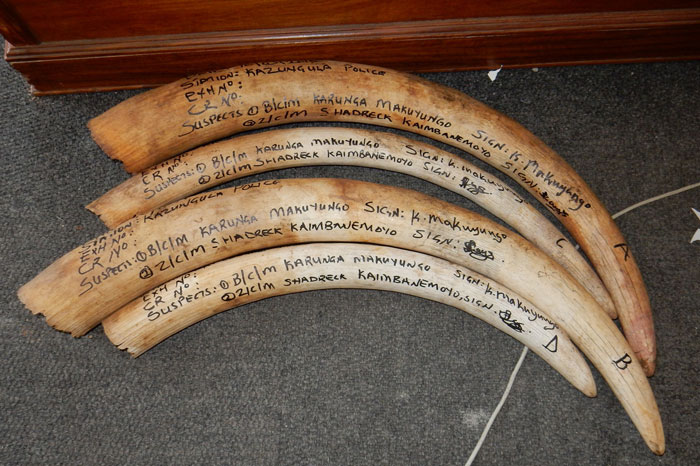 STATION: KAZUNGULA POLICE
EXH NO:
CR NO.
SUSPECTS ① B/C/M KARUNGA MAKUYUNGO SIGN: K. Makuyungo
② Z/C/M SHADRECK KAIMBANEMOYO SIGN
A
EXH NO:
CR NO:
SUSPECTS: ① B/C/M KARUNGA MAKUYUNGO SIGN: K. makuyungo
② Z/C/M SHADRECK KAIMBANEMOYO SIGN:
C
KAZUNGULA POLICE
EXH NO:
CR NO:
SUSPECTS: ① B/C/M KARUNGA MAKUYUNGO SIGN: K. makuyungo
② Z/C/M SHADRECK KAIMBANEMOYO SIGN:
B
EXH NO:
CR NO:
SUSPECTS: ① B/C/M KARUNGA MAKUYUNGO SIGN: K. makuyungo
② Z/C/M SHADRECK KAIMBANEMOYO, SIGN.
D